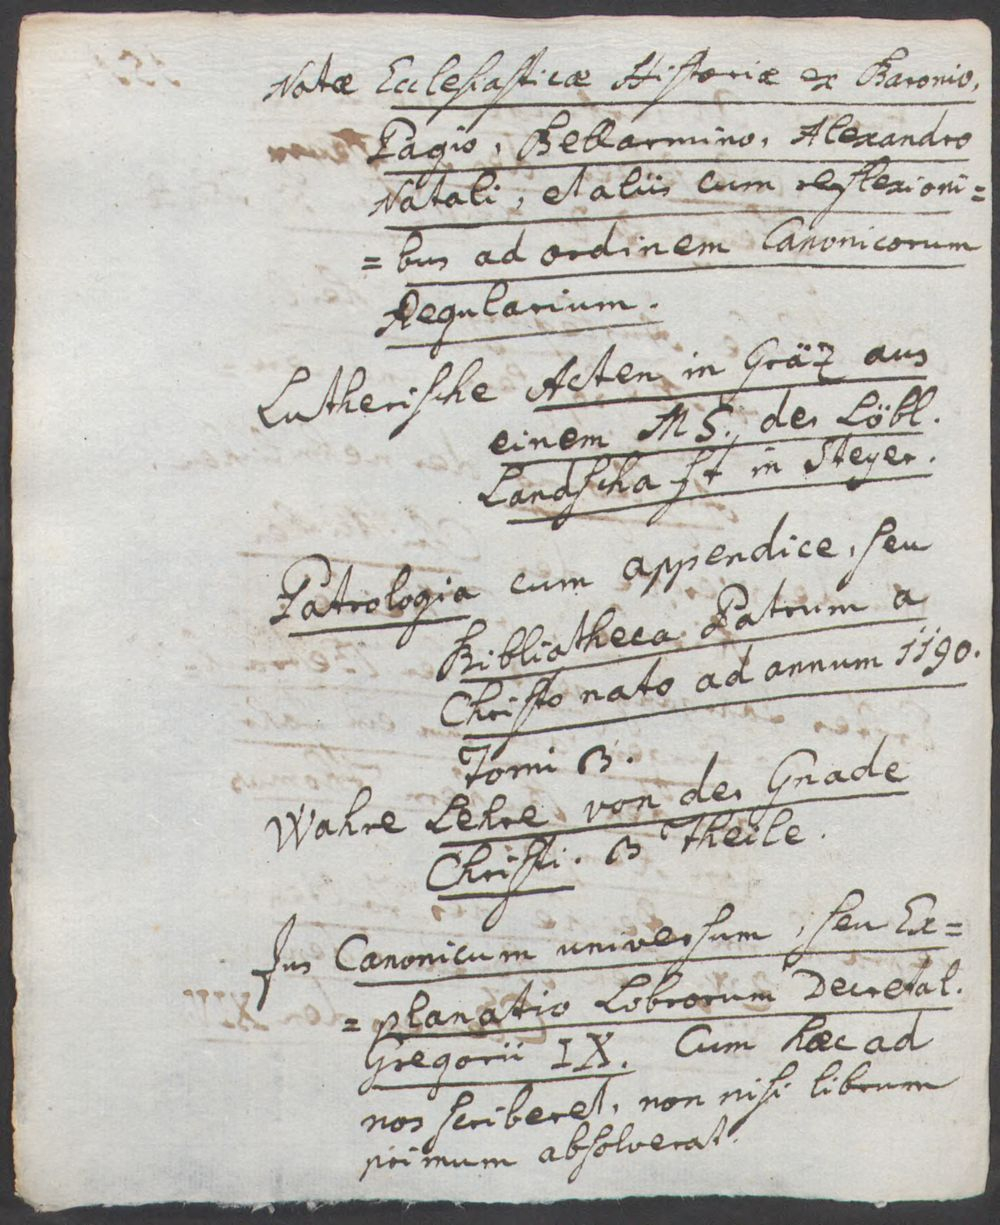 Notæ Ecclesiasticæ Historiæ ex Baronio,
Pagio, Bellarmino, Alexandro
Natali, et aliis cum reflexioni=
=bus ad ordinem Canonicorum
Regularium.
Lutherische Acten in Gräz aus
einem MS. der Löbl.
Landschaft in Steyer.
Patrologia cum appendice, seu
Bibliatheca Patrum a
Christo nato ad annum 1190.
Tomi 3.
Wahre Lehre von der Gnade
Christi. 3 Theile.
Jus Canonicum universum, seu Ex=
=planatio Lobrorum Decretal.
Gregorii IX. Cum hæc ad
nos scriberet, non nisi librum
primum absolverat.